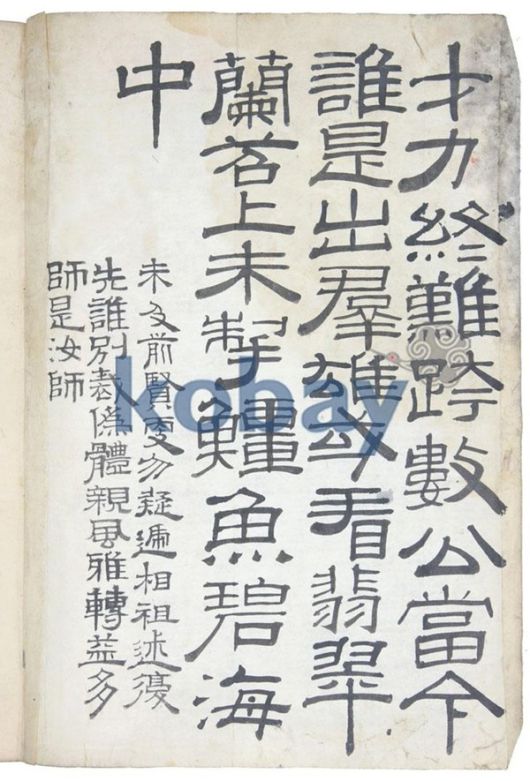 才力終難跨數公當今
誰是出羣雄或看翡翠
蘭苕上未掣䲔魚碧海
中
未及前賢更勿疑遞相祖述復
先誰別裁僞體親風雅轉益多
師是汝師
kobay